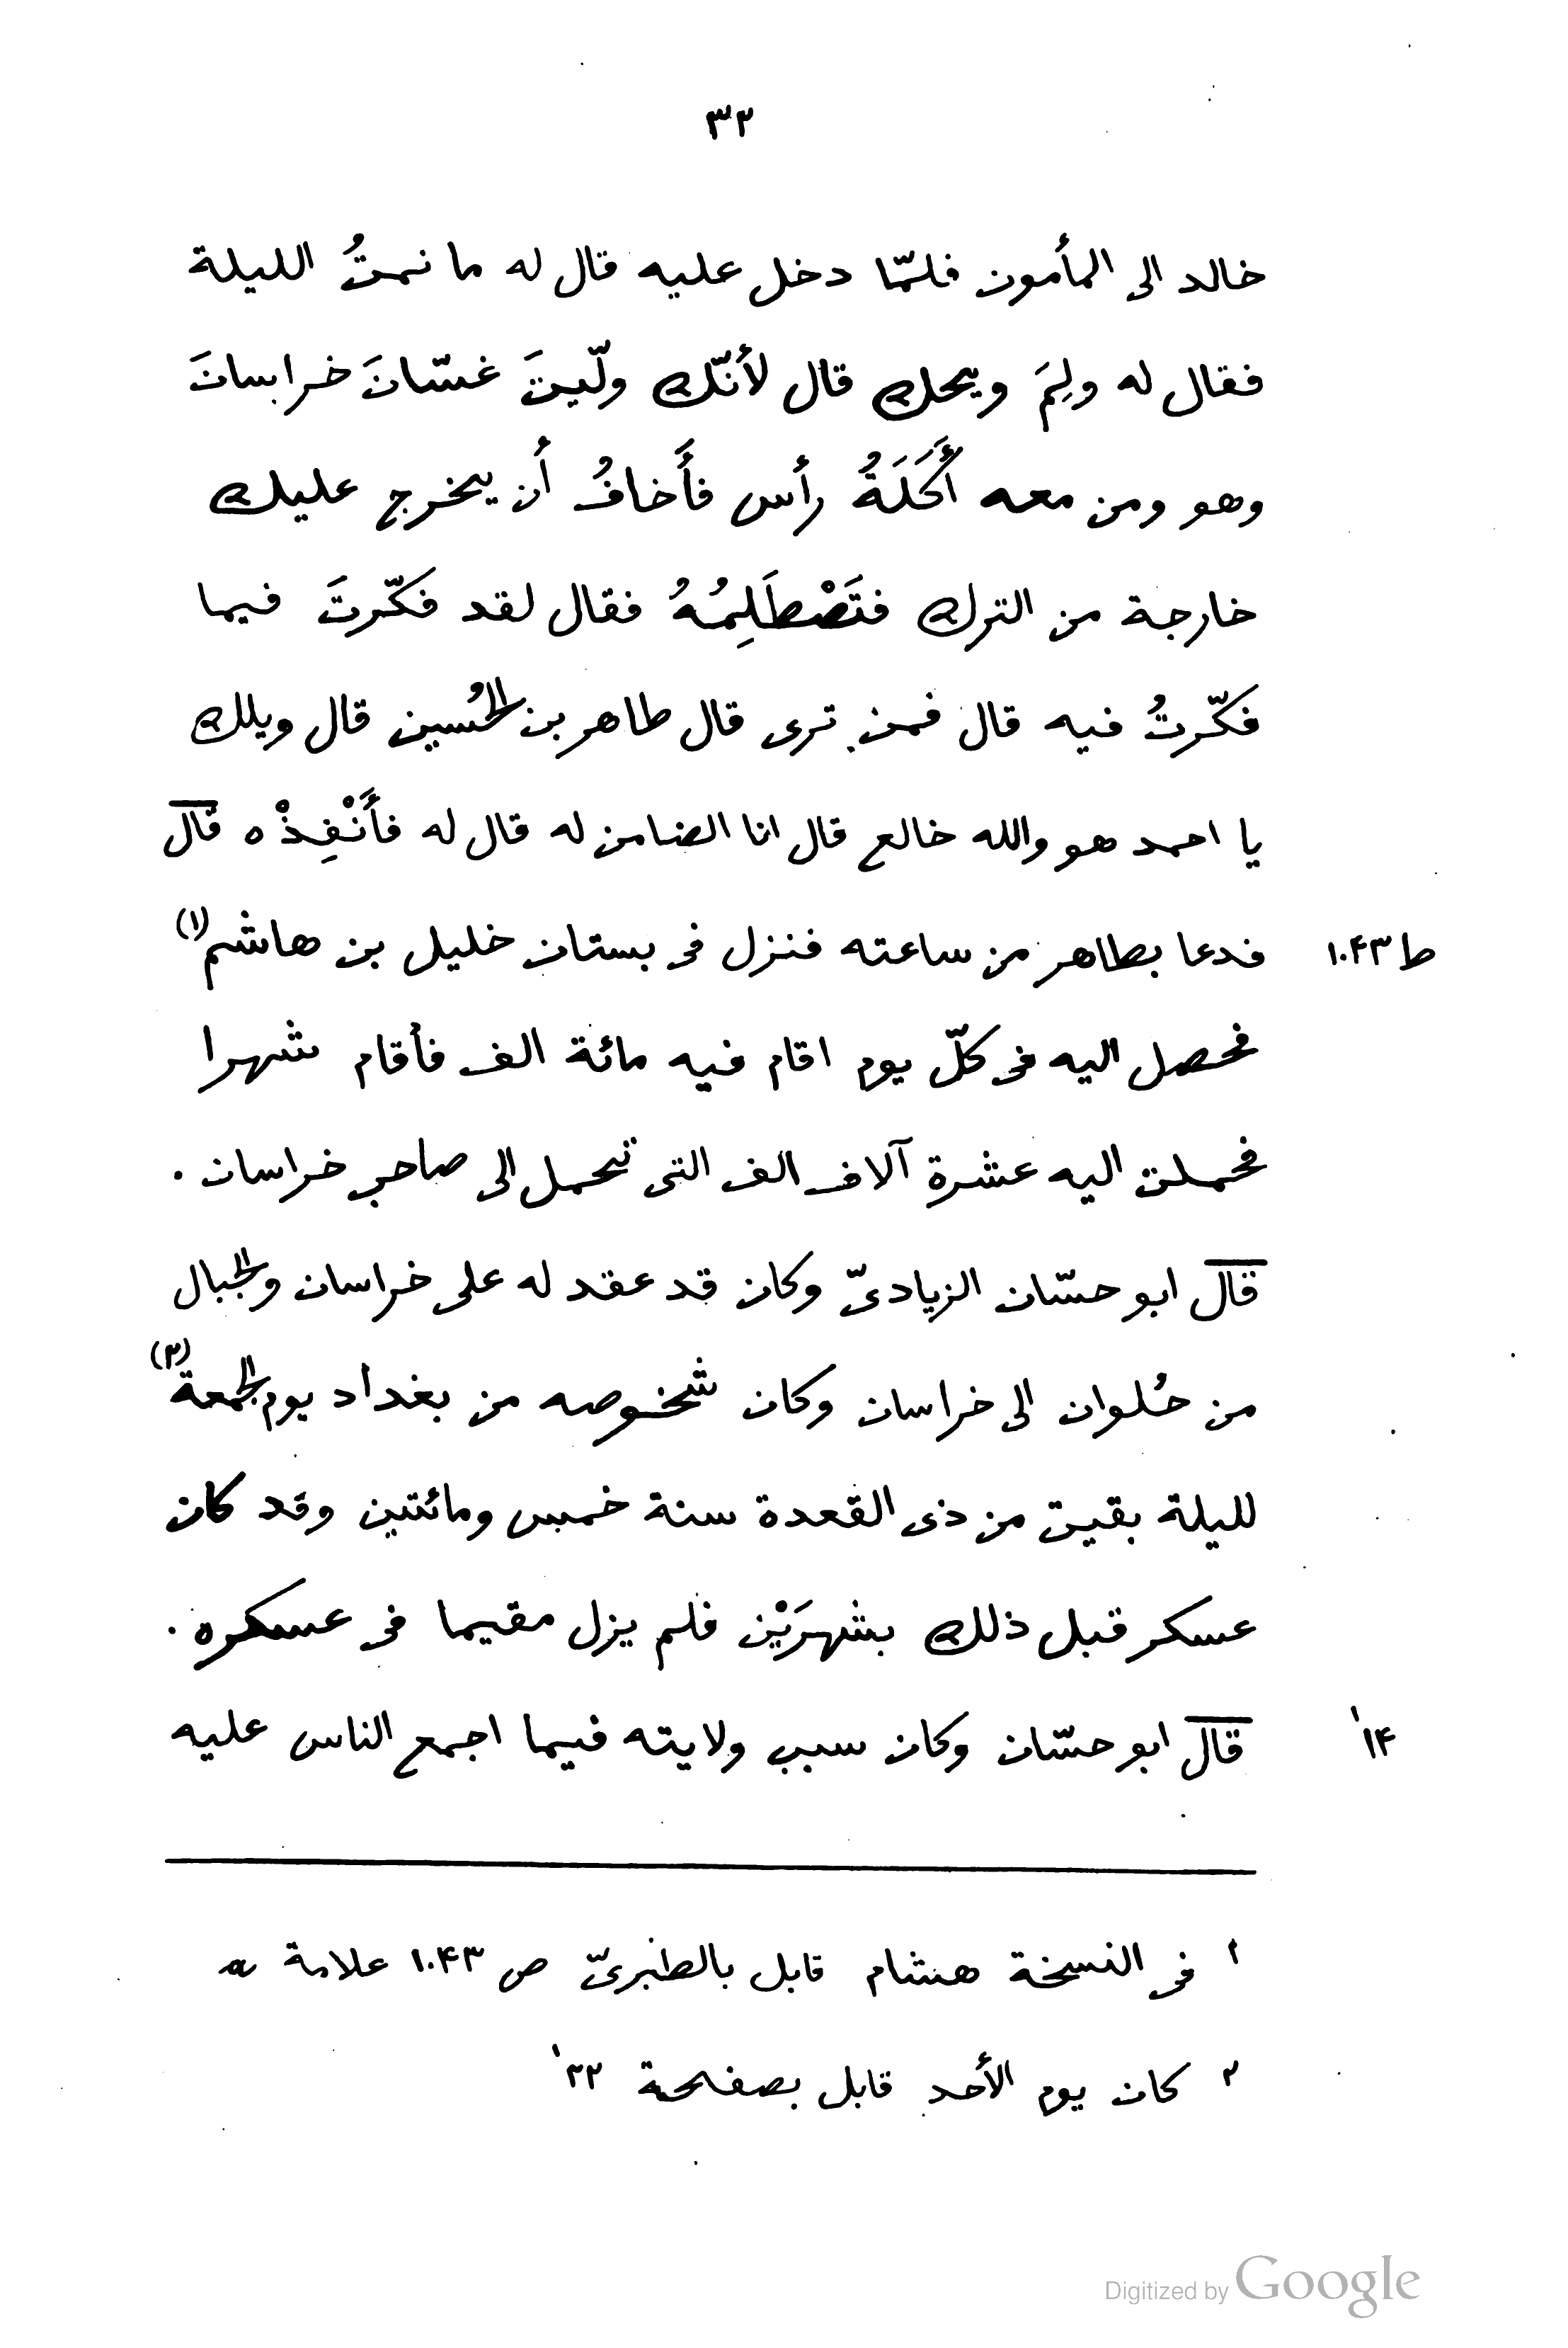 ٣٢
خالد الى المأمون فلمّا دخل عليه قال له ما نمتُ الليلة
فقال له ولِمَ ويحك قال لأنّك ولّيتَ غسّانَ خراسانَ
وهو ومن معه أَكَلَةُ رأس فأَخافُ أن يخرج عليك
خارجة من الترك فتَصْطَلِمُهُ فقال لقد فكّرتَ فيما
فكّرتُ فيه قال فمن ترى قال طاهر بن الحُسين قال ويلك
يا احمد هو والله خالع قال انا الضامن له قال له فأَنْفِذْه قال
ط ١٠٤٣ فدعا بطاهر من ساعته فنزل فى بستان خليل بن هاشم (١)
فحصل اليه فى كلّ يوم اقام فيه مائة الف فأقام شهرا
فحملت اليه عشرة آلاف الف التى تحمل الى صاحب خراسان .
قال ابو حسّان الزيادىّ وكان قد عقد له على خراسان والجبال
من حُلوان الى خراسان وكان شخوصه من بغداد يوم الجمعة (٢)
لليلة بقيت من ذى القعدة سنة خمس ومائتين وقد كان
عسكر قبل ذلك بشهرَيْن فلم يزل مقيما فى عسكره .
١٤' قال ابو حسّان وكان سبب ولايته فيما اجمع الناس عليه
١ فى النسخة هشام قابل بالطبرىّ ص ١٠٤٣ علامة a
٢ كان يوم الأحد قابل بصفحة ٢٢'
Digitized by Google